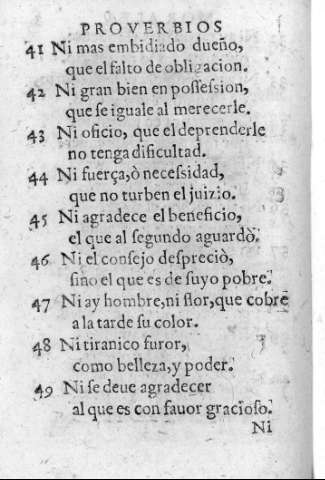 PROVERBIOS
41 Ni mas embidiado dueño,
que el falto de obligacion.
42 Ni gran bien en possession,
que se iguale al merecerle.
43 Ni oficio, que el deprenderle
no tenga dificultad.
44 Ni fuerça,ò necessidad,
que no turben el juizio.
45 Ni agradece el beneficio,
el que al segundo aguardò.
46 Ni el consejo despreciò,
sino el que es de suyo pobre.
47 Ni ay hombre,ni flor,que cobre
a la tarde su color.
48 Ni tiranico furor,
como belleza,y poder.
49 Ni se deue agradecer
al que es con fauor gracioso.
Ni